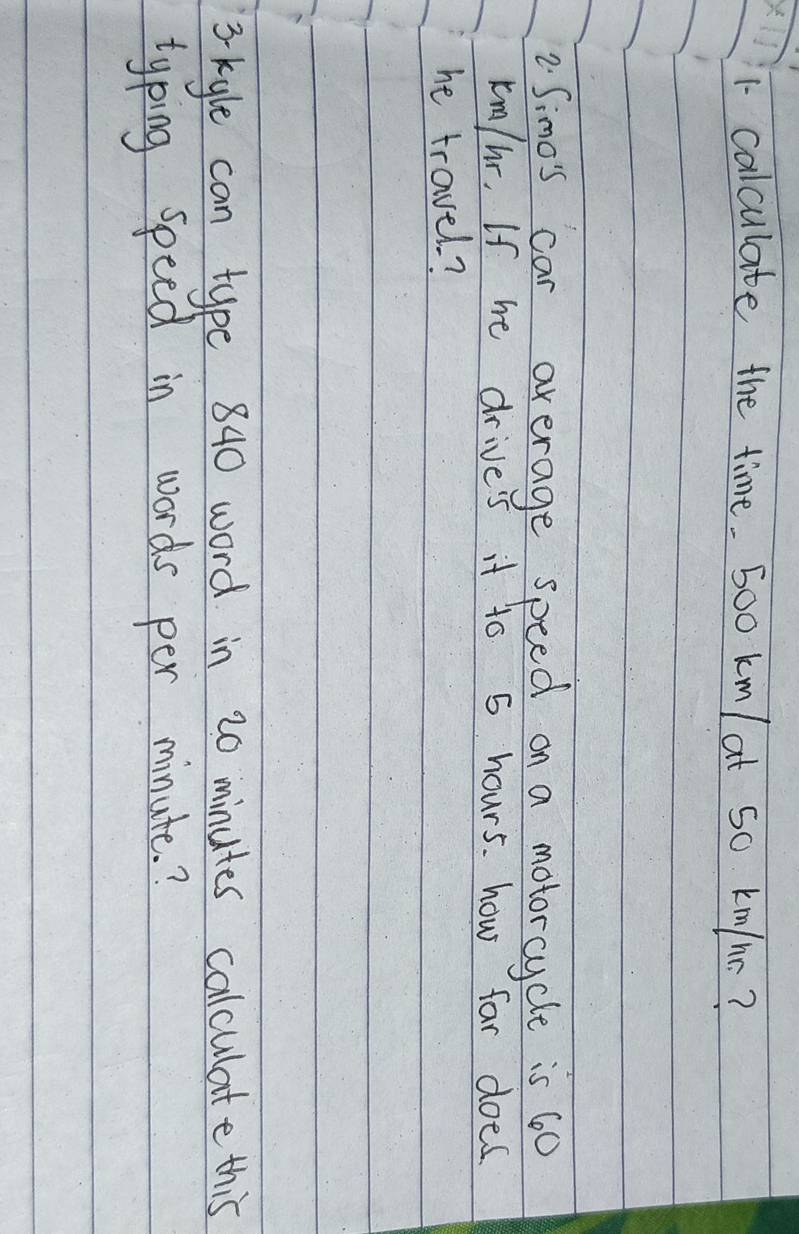 1- Calculate the time. 500 km/at 50 km/hr.?
2. Simo's car average speed on a motorcycle is 60
km/hr. If he drive's it to 5 hours. how far does
he travel.?
3- Kyle can type 840 word in 20 minutes calculate this
typing speed in words per minute.?